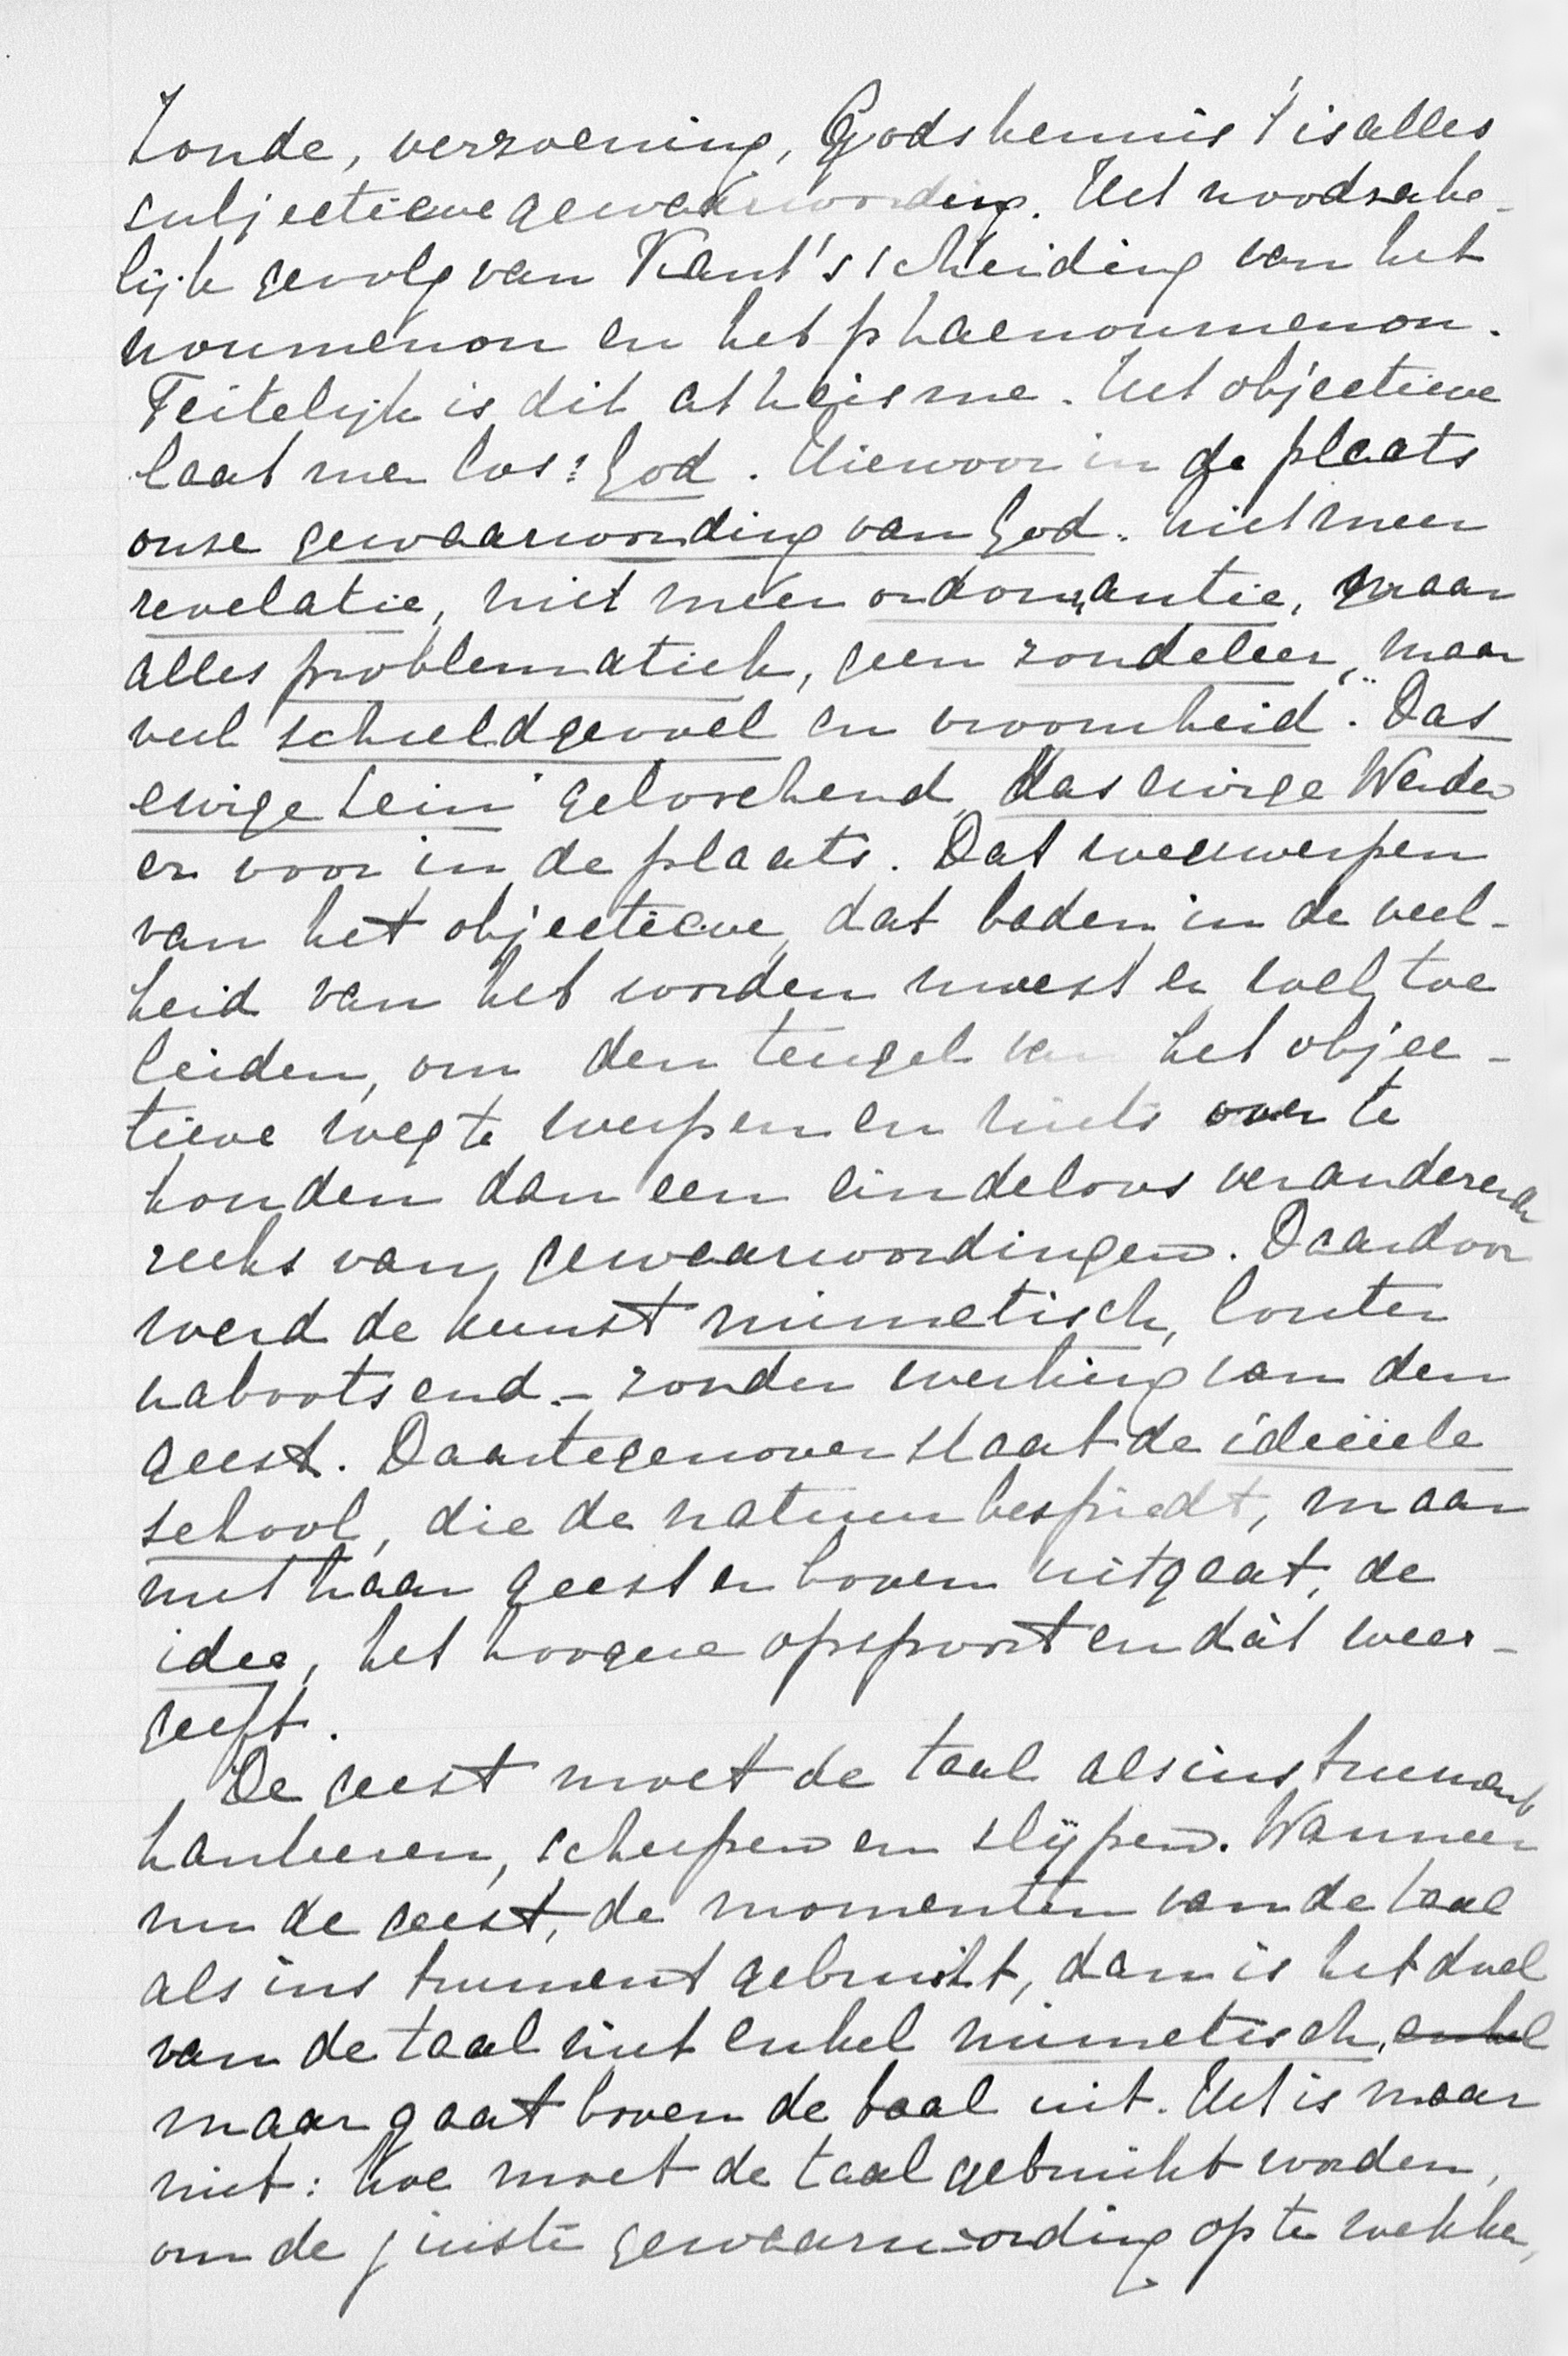 Zonde, verzoening, Godskennis 't is alles
subjectieve gewaarwording. Het noodzake-
lijk gevolg van Kant's scheiding van het
noumenon en het phaenoumenon.
Feitelijk is dit atheisme. Het objectieve
laat men los: God. Hiervoor in de plaats
onze gewaarwording van God. niet meer
revelatie, niet meer ordonnantie, maar
alles problematiek, geen zondeleer, maar
veel schuldgevoel en vroomheid. Das
ewige Sein geloochend, das ewige Werden
er voor in de plaats. Dat wegwerpen
van het objectieve, dat baden in de veel-
heid van het worden moest er wel toe
leiden, om den teugel van het objec-
tieve weg te werpen en niets over te
houden dan een eindeloos veranderende
reeks van gewaarwordingen. Daardoor
werd de kunst mimetisch, louter
nabootsend - zonder werking van den
geest. Daartegenover staat de ideëele
school, die de natuur bespiedt, maar
met haar geest er boven uitgaat, de
idee, het hoogere opspoort en dàt weer-
geeft.
De geest moet de taal als instrument
hanteeren, scherpen en slijpen. Wanneer
nu de geest, de momenten van de taal
als instrument gebruikt, dan is het doel
van de taal niet enkel mimetisch, enkel
maar gaat boven de taal uit. Het is maar
niet: hoe moet de taal gebruikt worden,
om de juiste gewaarwording op te wekken,